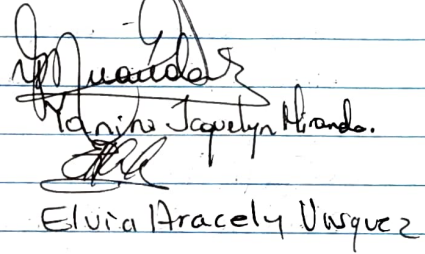 YMiranda
Yanina Jaquelyn Miranda.
Elvia Aracely Vasquez